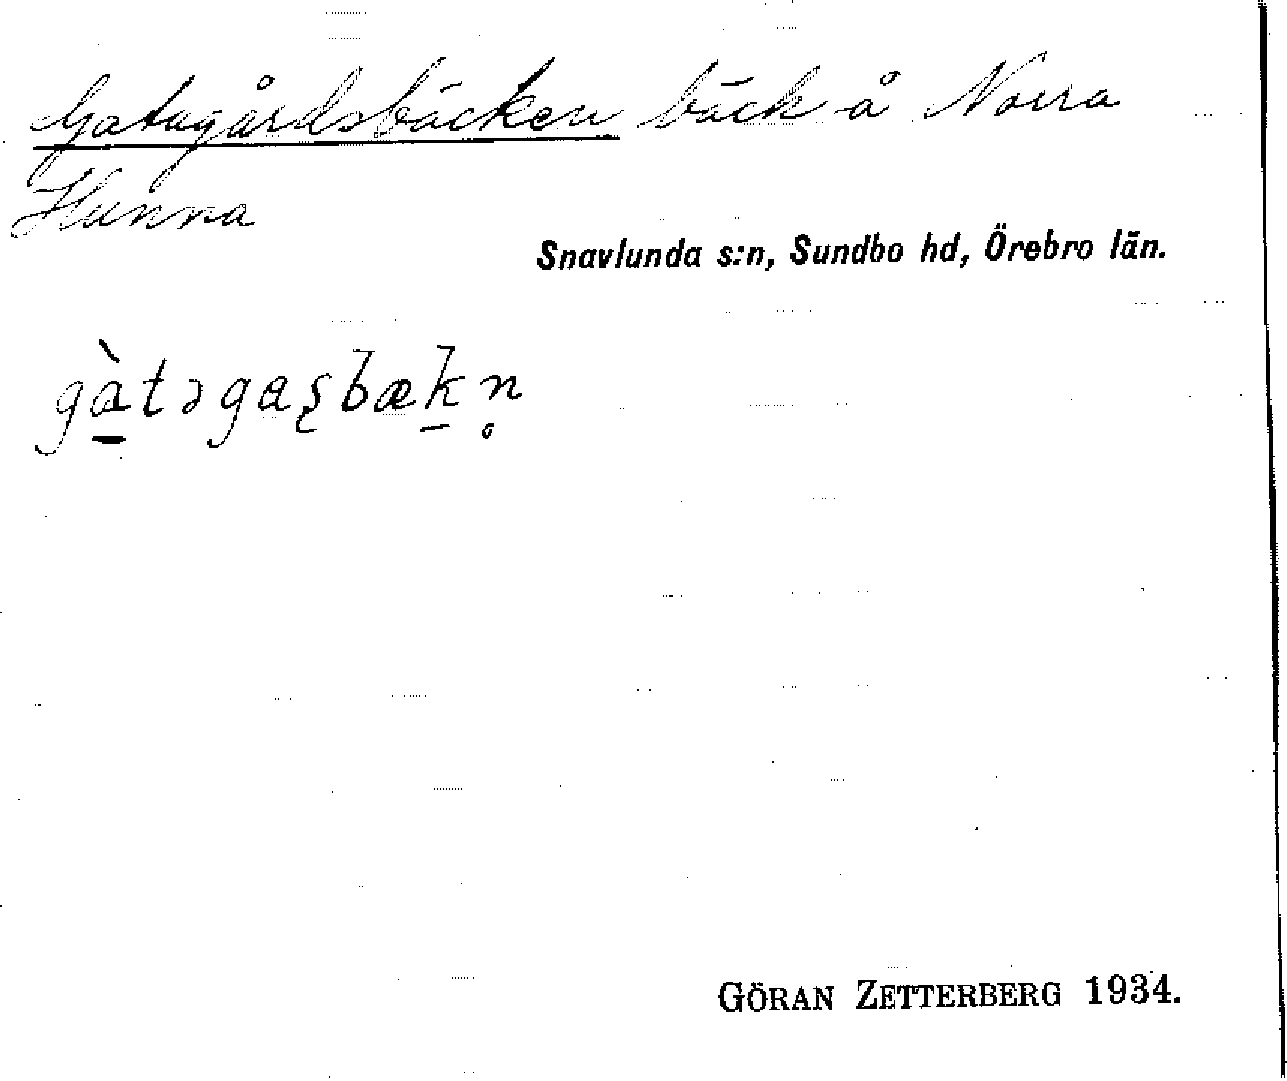 Gatugårdsbäcken bäck å Norra
Hunna
Snavlunda s:n, Sundbo hd, Örebro län.
gà̱təgaʂbæḵn̥
GÖRAN ZETTERBERG 1934.